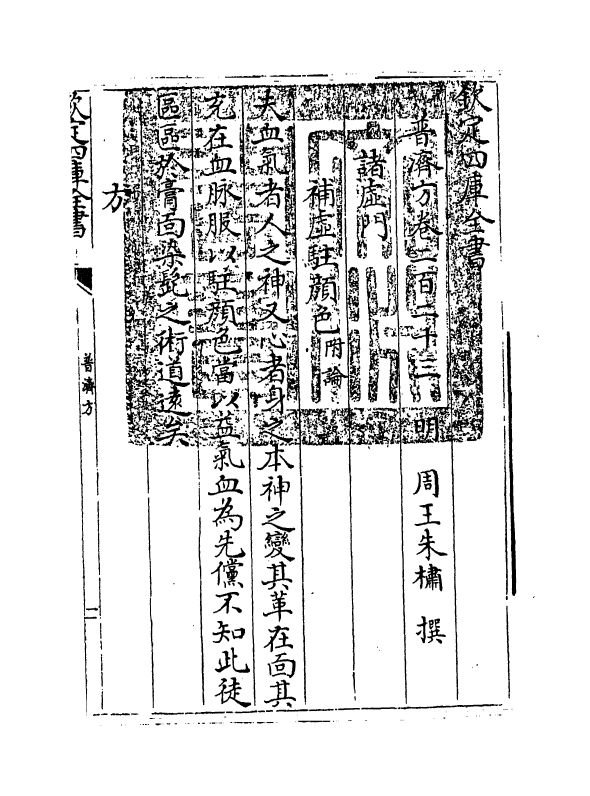 欽定四庫全書
普濟方卷二百二十三 明 周王朱橚 撰
諸虛門
補虛駐顔色附論
夫血氣者人之神又心者身之本神之變其革在面其
充在血脉服以駐顔色當以益氣血為先儻不知此徒
區區於膏面染髭之術道遠矣
方
欽定四庫全書
普濟方